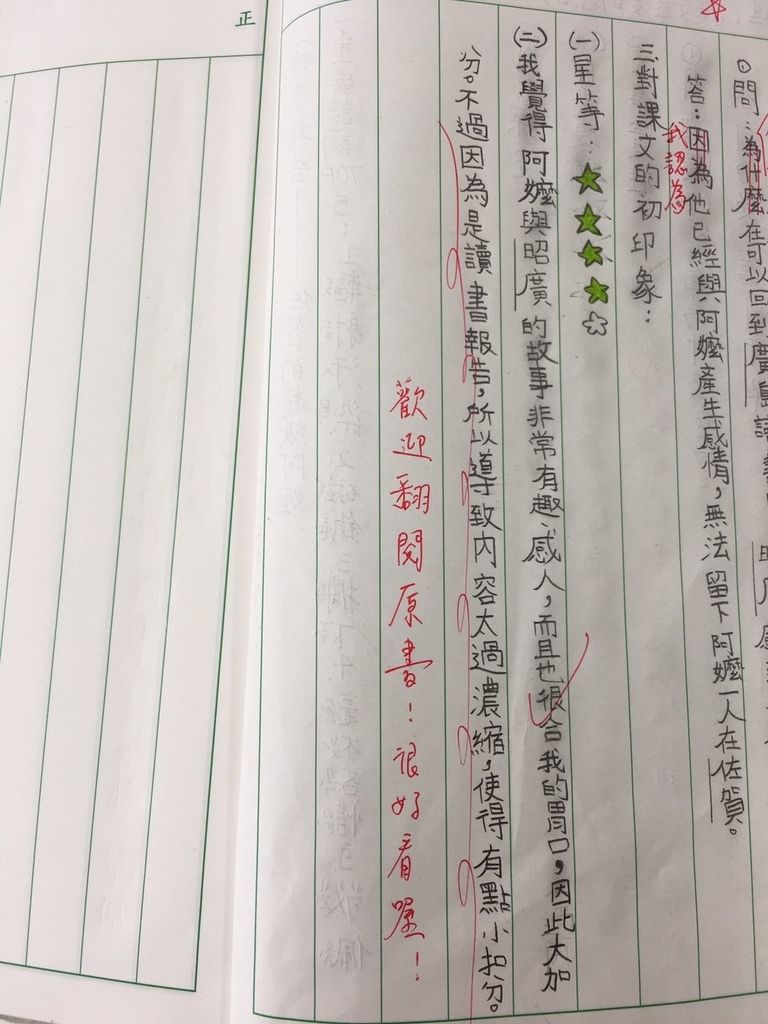 問：為什麼在可以回到廣島讀
答：因為他已經與阿嬤產生感情，無法留下阿嬤一人在佐賀。
我認為
三對課文的初印象：
(一)星等：★★★★☆
(二)我覺得阿嬤與昭廣的故事非常有趣、感人，而且也很合我的胃口，因此大加
分。不過因為是讀書報告，所以導致內容太過濃縮，使得有點小扣分。
歡迎翻閱原書！很好看喔！
正